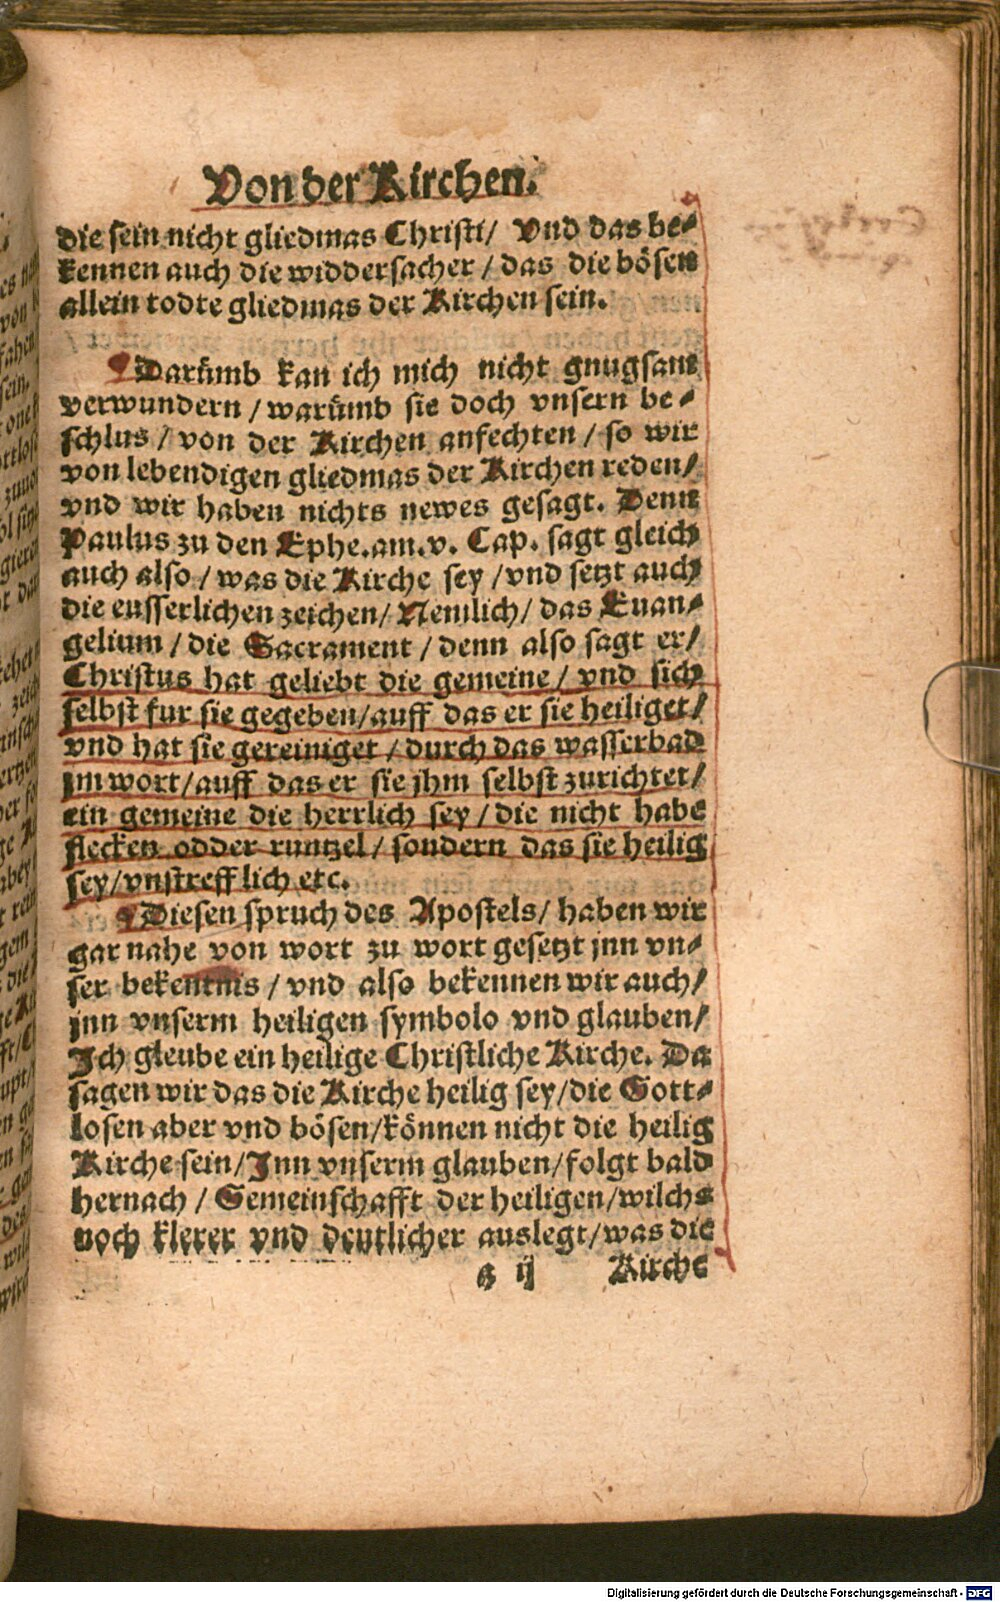 Von der Kirchen.
die sein nicht gliedmas Christi/ Vnd das be⸗
kennen auch die widdersacher / das die bösen
allein todte gliedmas der Kirchen sein.
Darümb kan ich mich nicht gnugsam
verwundern / warümb sie doch vnsern be⸗
schlus / von der Kirchen anfechten / so wir
von lebendigen gliedmas der Kirchen reden/
vnd wir haben nichts newes gesagt. Denn
Paulus zu den Ephe. am. v. Cap. sagt gleich
auch also / was die Kirche sey / vnd setzt auch
die eusserlichen zeichen/ Nemlich/ das Euan⸗
gelium / die Sacrament / denn also sagt er/
Christus hat geliebt die gemeine / vnd sich
selbst fur sie gegeben/auff das er sie heiliget/
vnd hat sie gereiniget / durch das wasserbad
jm wort/auff das er sie jhm selbst zurichtet/
ein gemeine die herrlich sey / die nicht habe
flecken odder runtzel / sondern das sie heilig
sey/vnstrefflich etc.
Diesen spruch des Apostels/ haben wir
gar nahe von wort zu wort gesetzt jnn vn⸗
ser bekentnis / vnd also bekennen wir auch/
jnn vnserm heiligen symbolo vnd glauben/
Ich gleube ein heilige Christliche Kirche. Da
sagen wir das die Kirche heilig sey/die Gott⸗
losen aber vnd bösen/können nicht die heilig
Kirche sein/Inn vnserm glauben/folgt bald
hernach / Gemeinschafft der heiligen/wilchs
noch klerer vnd deutlicher auslegt/was die
G ij Kirche
Digitalisierung gefördert durch die Deutsche Forschungsgemeinschaft - DFG